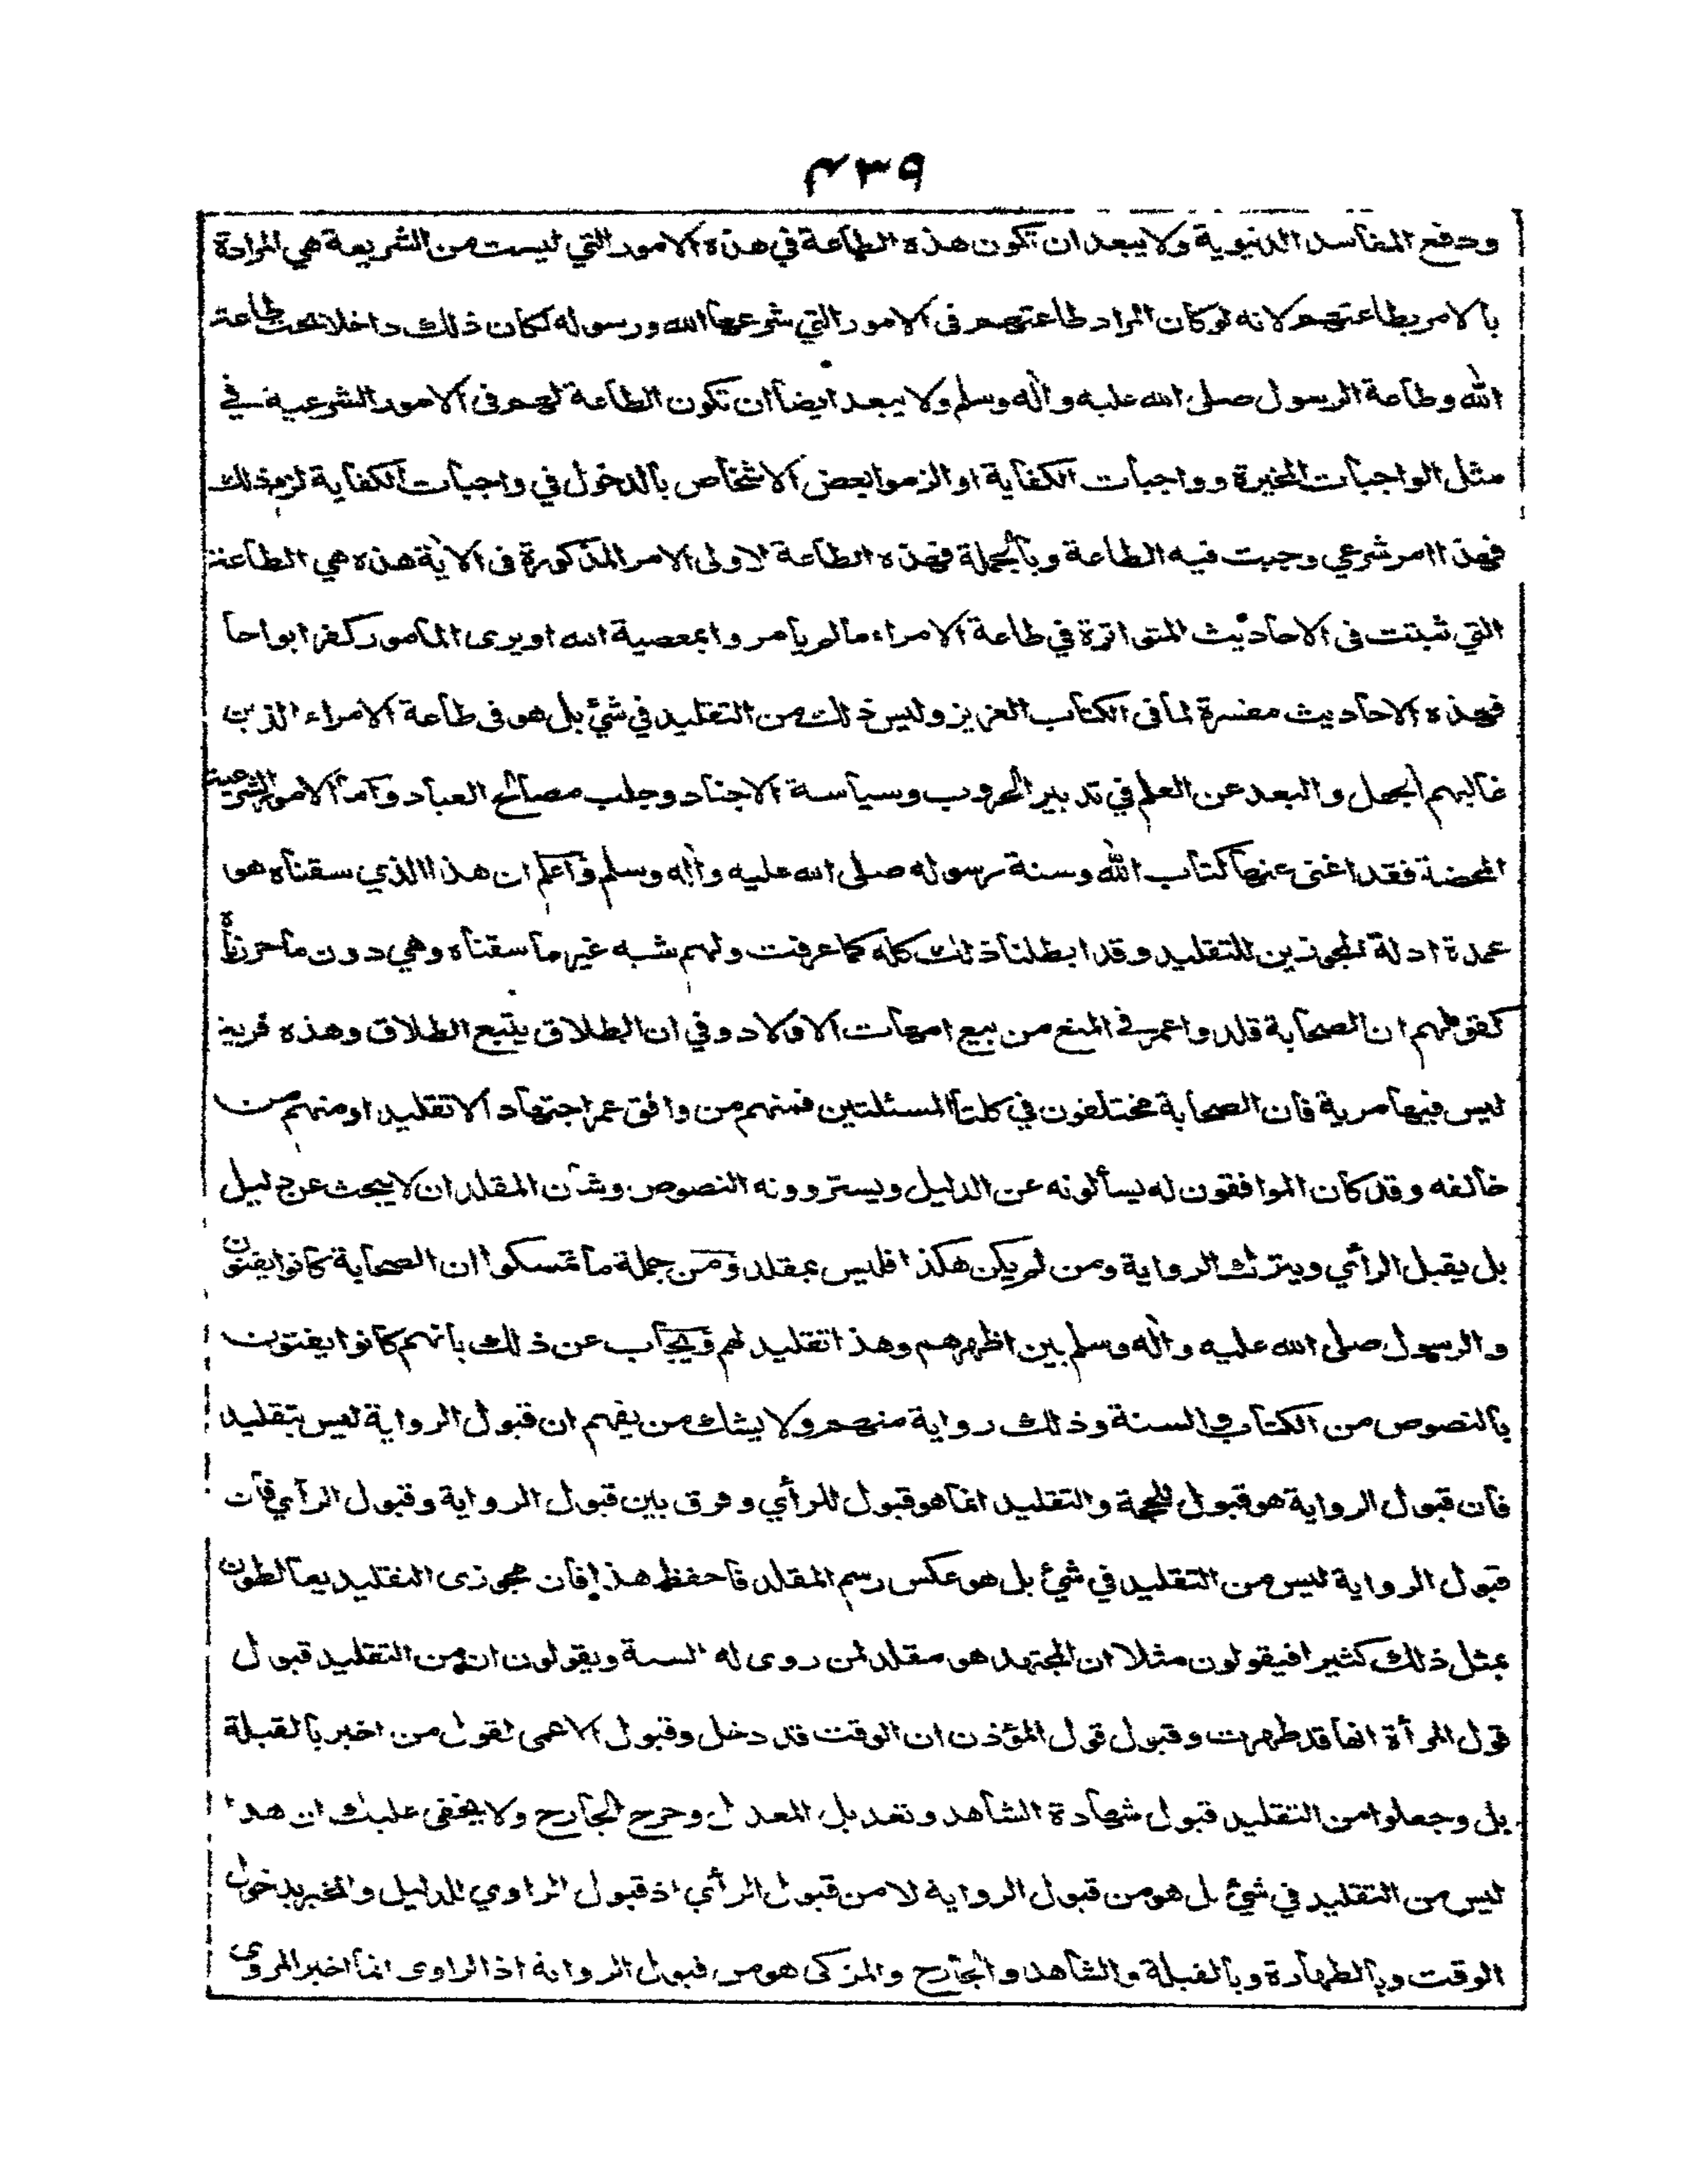 ٤٣٩
ودفع المفاسد الدنيوية ولا يبعد ان تكون هذه الطاعة في هذه الامور التي ليست من الشريعة هي المرادة
بالامر بطاعتهم لانه لو كان المراد طاعتهم فى الامور التي شرعها الله ورسوله لكان ذلك داخلا تحت طاعة
الله وطاعة الرسول صلى الله عليه واٰله وسلم ولا يبعد ايضا ان تكون الطاعة لهم فى الامور الشرعية في
مثل الواجبات المخيرة وواجبات الكفاية او الزموا بعض الاشخاص بالدخول في واجبات الكفاية لزم ذلك
فهذا امر شرعي وجبت فيه الطاعة وبالجملة فهذه الطاعة لاولى الامر المذكورة فى الاٰية هذه هي الطاعة
التي ثبتت فى الاحاديث المتواترة في طاعة الامراء مالم يأمروا بمعصية الله او يرى المأمور كفرا بواحا
فهذه الاحاديث مفسرة لما فى الكتاب العزيز وليس ذلك من التقليد في شئ بل هو فى طاعة الامراء الذين
غالبهم الجهل والبعد عن العلم في تدبير الحروب وسياسة الاجناد وجلب مصالح العباد واما الامور الشرعية
المحضة فقد اغنى عنها كتاب الله وسنة رسوله صلى الله عليه واٰله وسلم واعلم ان هذا الذي سقناه هو
عمدة ادلة المجوزين للتقليد وقد ابطلنا ذلك كله كما عرفت ولهم شبه غير ما سقناه وهي دون ما حررناه
كقولهم ان الصحابة قلدوا عمر في المنع من بيع امهات الاولاد وفي ان الطلاق يتبع الطلاق وهذه فرية
ليس فيها مرية فان الصحابة مختلفون في كلتا المسئلتين فمنهم من وافق عمر اجتهادا لا تقليدا ومنهم من
خالفه وقد كان الموافقون له يسألونه عن الدليل ويستروونه النصوص وشان المقلد ان لا يبحث عن دليل
بل يقبل الرأي ويترك الرواية ومن لم يكن هكذا فليس بمقلد ومن جملة ما تمسكوا ان الصحابة كانوا يفتون
والرسول صلى الله عليه واٰله وسلم بين اظهرهم وهذا تقليد لهم ويجاب عن ذلك بانهم كانوا يفتون
بالنصوص من الكتاب والسنة وذلك رواية منهم ولا يشك من يفهم ان قبول الرواية ليس بتقليد
فان قبول الرواية هو قبول للحجة والتقليد انما هو قبول للرأي وفرق بين قبول الرواية وقبول الرأي فان
قبول الرواية ليس من التقليد في شئ بل هو عكس رسم المقلد فاحفظ هذا فان مجوزى التقليد يغالطون
بمثل ذلك كثيرا فيقولون مثلا ان المجتهد هو مقلد لمن روى له السنة ويقولون ان من التقليد قبول
قول المرأة انها قد طهرت وقبول قول المؤذن ان الوقت قد دخل وقبول الاعمى لقول من اخبر بالقبلة
بل وجعلوا من التقليد قبول شهادة الشاهد وتعديل المعدل وجرح الجارح ولا يخفى عليك ان هذا
ليس من التقليد في شئ بل هو من قبول الرواية لا من قبول الرأي اذ قبول الراوي للدليل والمخبر بدخول
الوقت وبالطهارة وبالقبلة والشاهد والجارح والمزكى هو من قبول الرواية اذ الراوى انما اخبر المروى